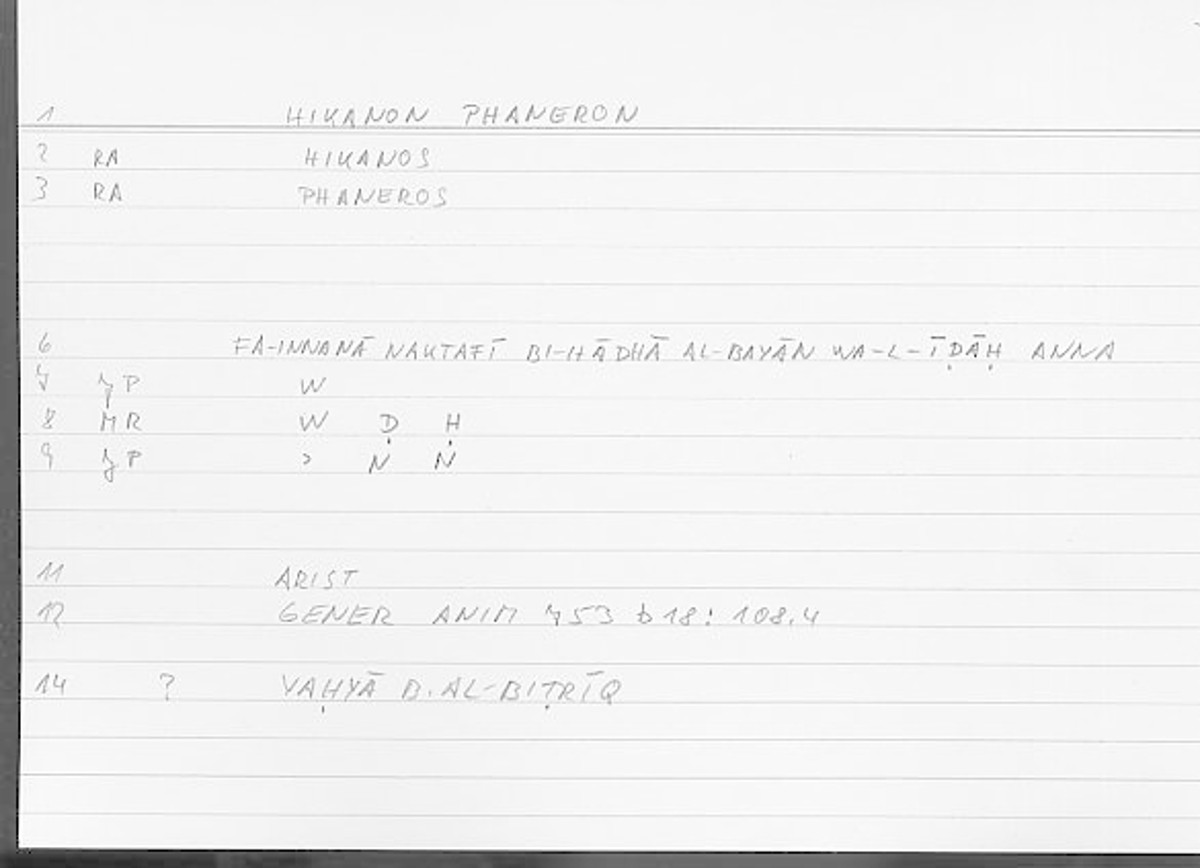 1 HIKANON PHANERON
2 RA HIKANOS
3 RA PHANEROS
6 FA-INNANĀ NAKTAFĪ BI-HĀDHĀ AL-BAYĀN WA-L-ĪḌĀḤ ANNA
7 JP W
8 MR W Ḍ Ḥ
9 JP > N N
11 ARIST
12 GENER ANIM 753 b18: 108.4
14 ? YAḤYĀ B. AL-BIṬRĪQ